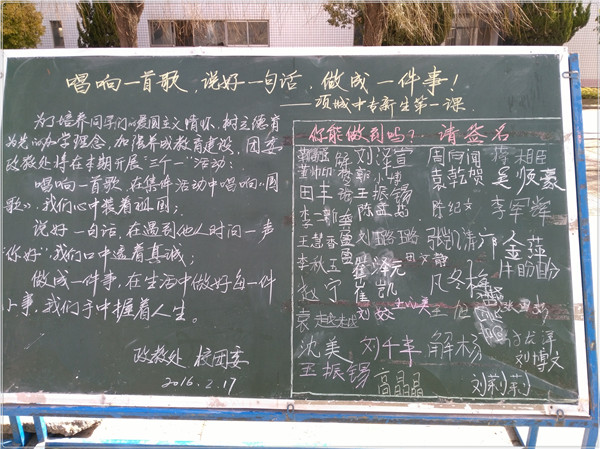 唱响一首歌，说好一句话，做成一件事！
——项城中专新生第一课
为了培养同学们的爱国主义情怀，树立德育
为先的办学理念，加强养成教育建设，团委
政教处将在本期开展"三个一"活动：
唱响一首歌，在集体活动中唱响《国
歌》，我们心中装着祖国；
说好一句话，在遇到他人时问一声
"你好"，我们口中透着真诚；
做成一件事，在生活中做好每一件
小事，我们手中握着人生。
政教处 校团委
2016.2.17
你能做到吗？请签名
刘洋萱 周向阅
袁乾贺 吴顺豪
田丰 王振锡
陈纪文 李军辉
王营香 张凯清 金萍
李秋玉 田文静 牛盼盼
赵宁 崔凯 凡冬梅
袁越越
沈美 刘千丰 解杨 刘博文
王振锡 高晶晶 刘莉莉